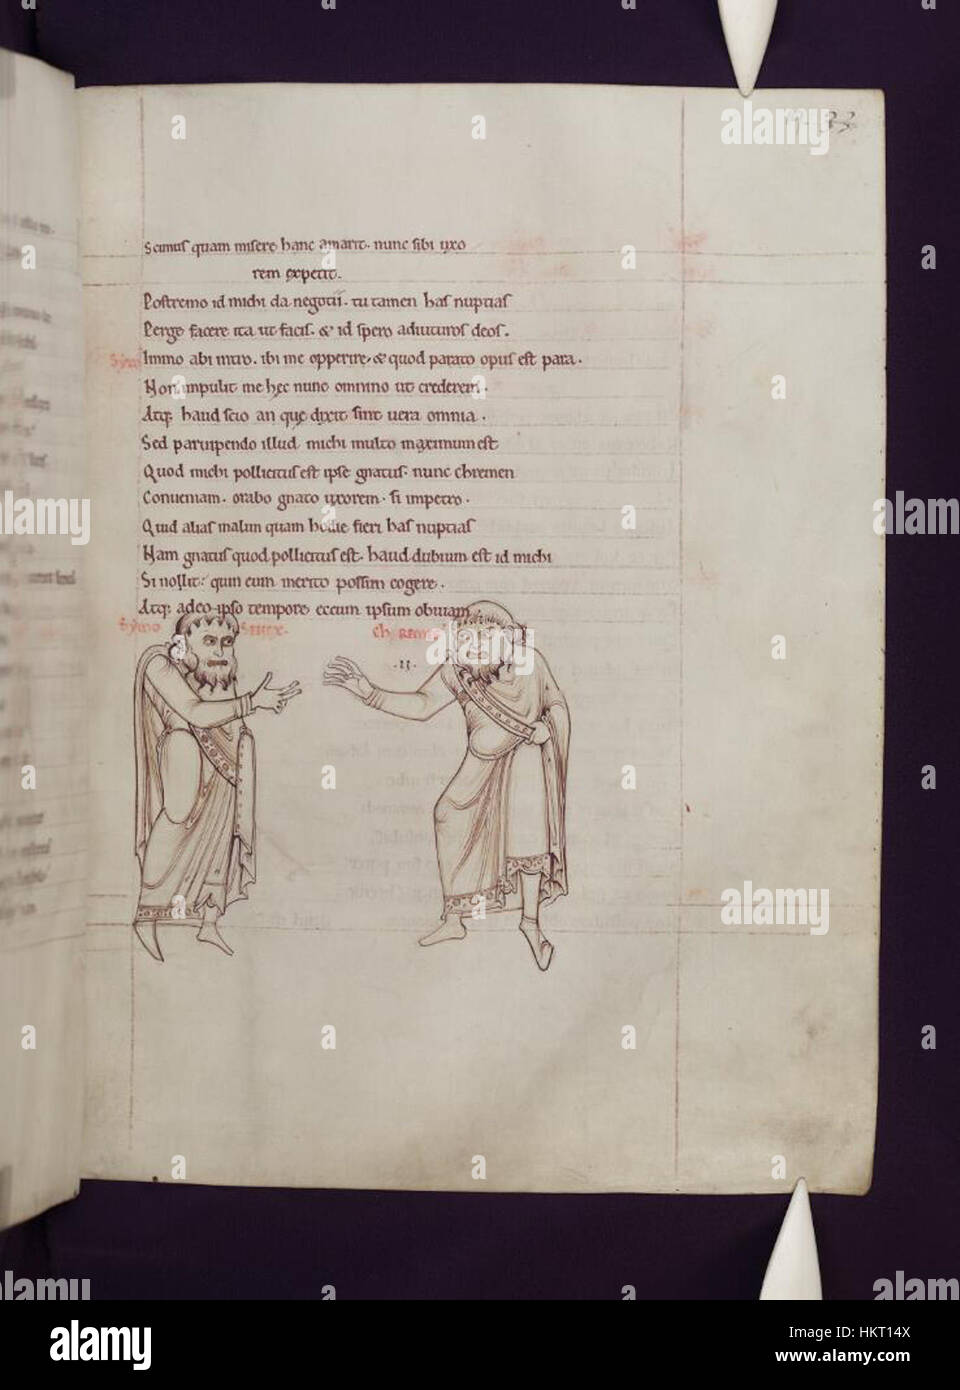 33
Scimus quam misere hanc amarit. nunc sibi uxo
rem expetit.
Postremo id michi da negotii. tu tamen has nuptias
Perge facere ita ut facis. & id spero adiuturos deos.
Immo abi intro. ibi me opperire. & quod parato opus est para.
Non impulit me hec nunc omnino ut crederem.
Atq; haud scio an que dixit sint uera omnia.
Sed paruipendo illud michi multo maximum est
Quod michi pollicitus est ipse gnatus. nunc chremen
Conueniam. orabo gnato uxorem. si impetro.
Quid alias malim quam hodie fieri has nuptias
Nam gnatus quod pollicitus est. haud dubium est id michi
Si nollit: quin eum merito possim cogere.
Atq; adeo ipso tempore eccum ipsum obuiam.
Symo Senex. Chremes
alamy
Image ID: HKT14X
www.alamy.com